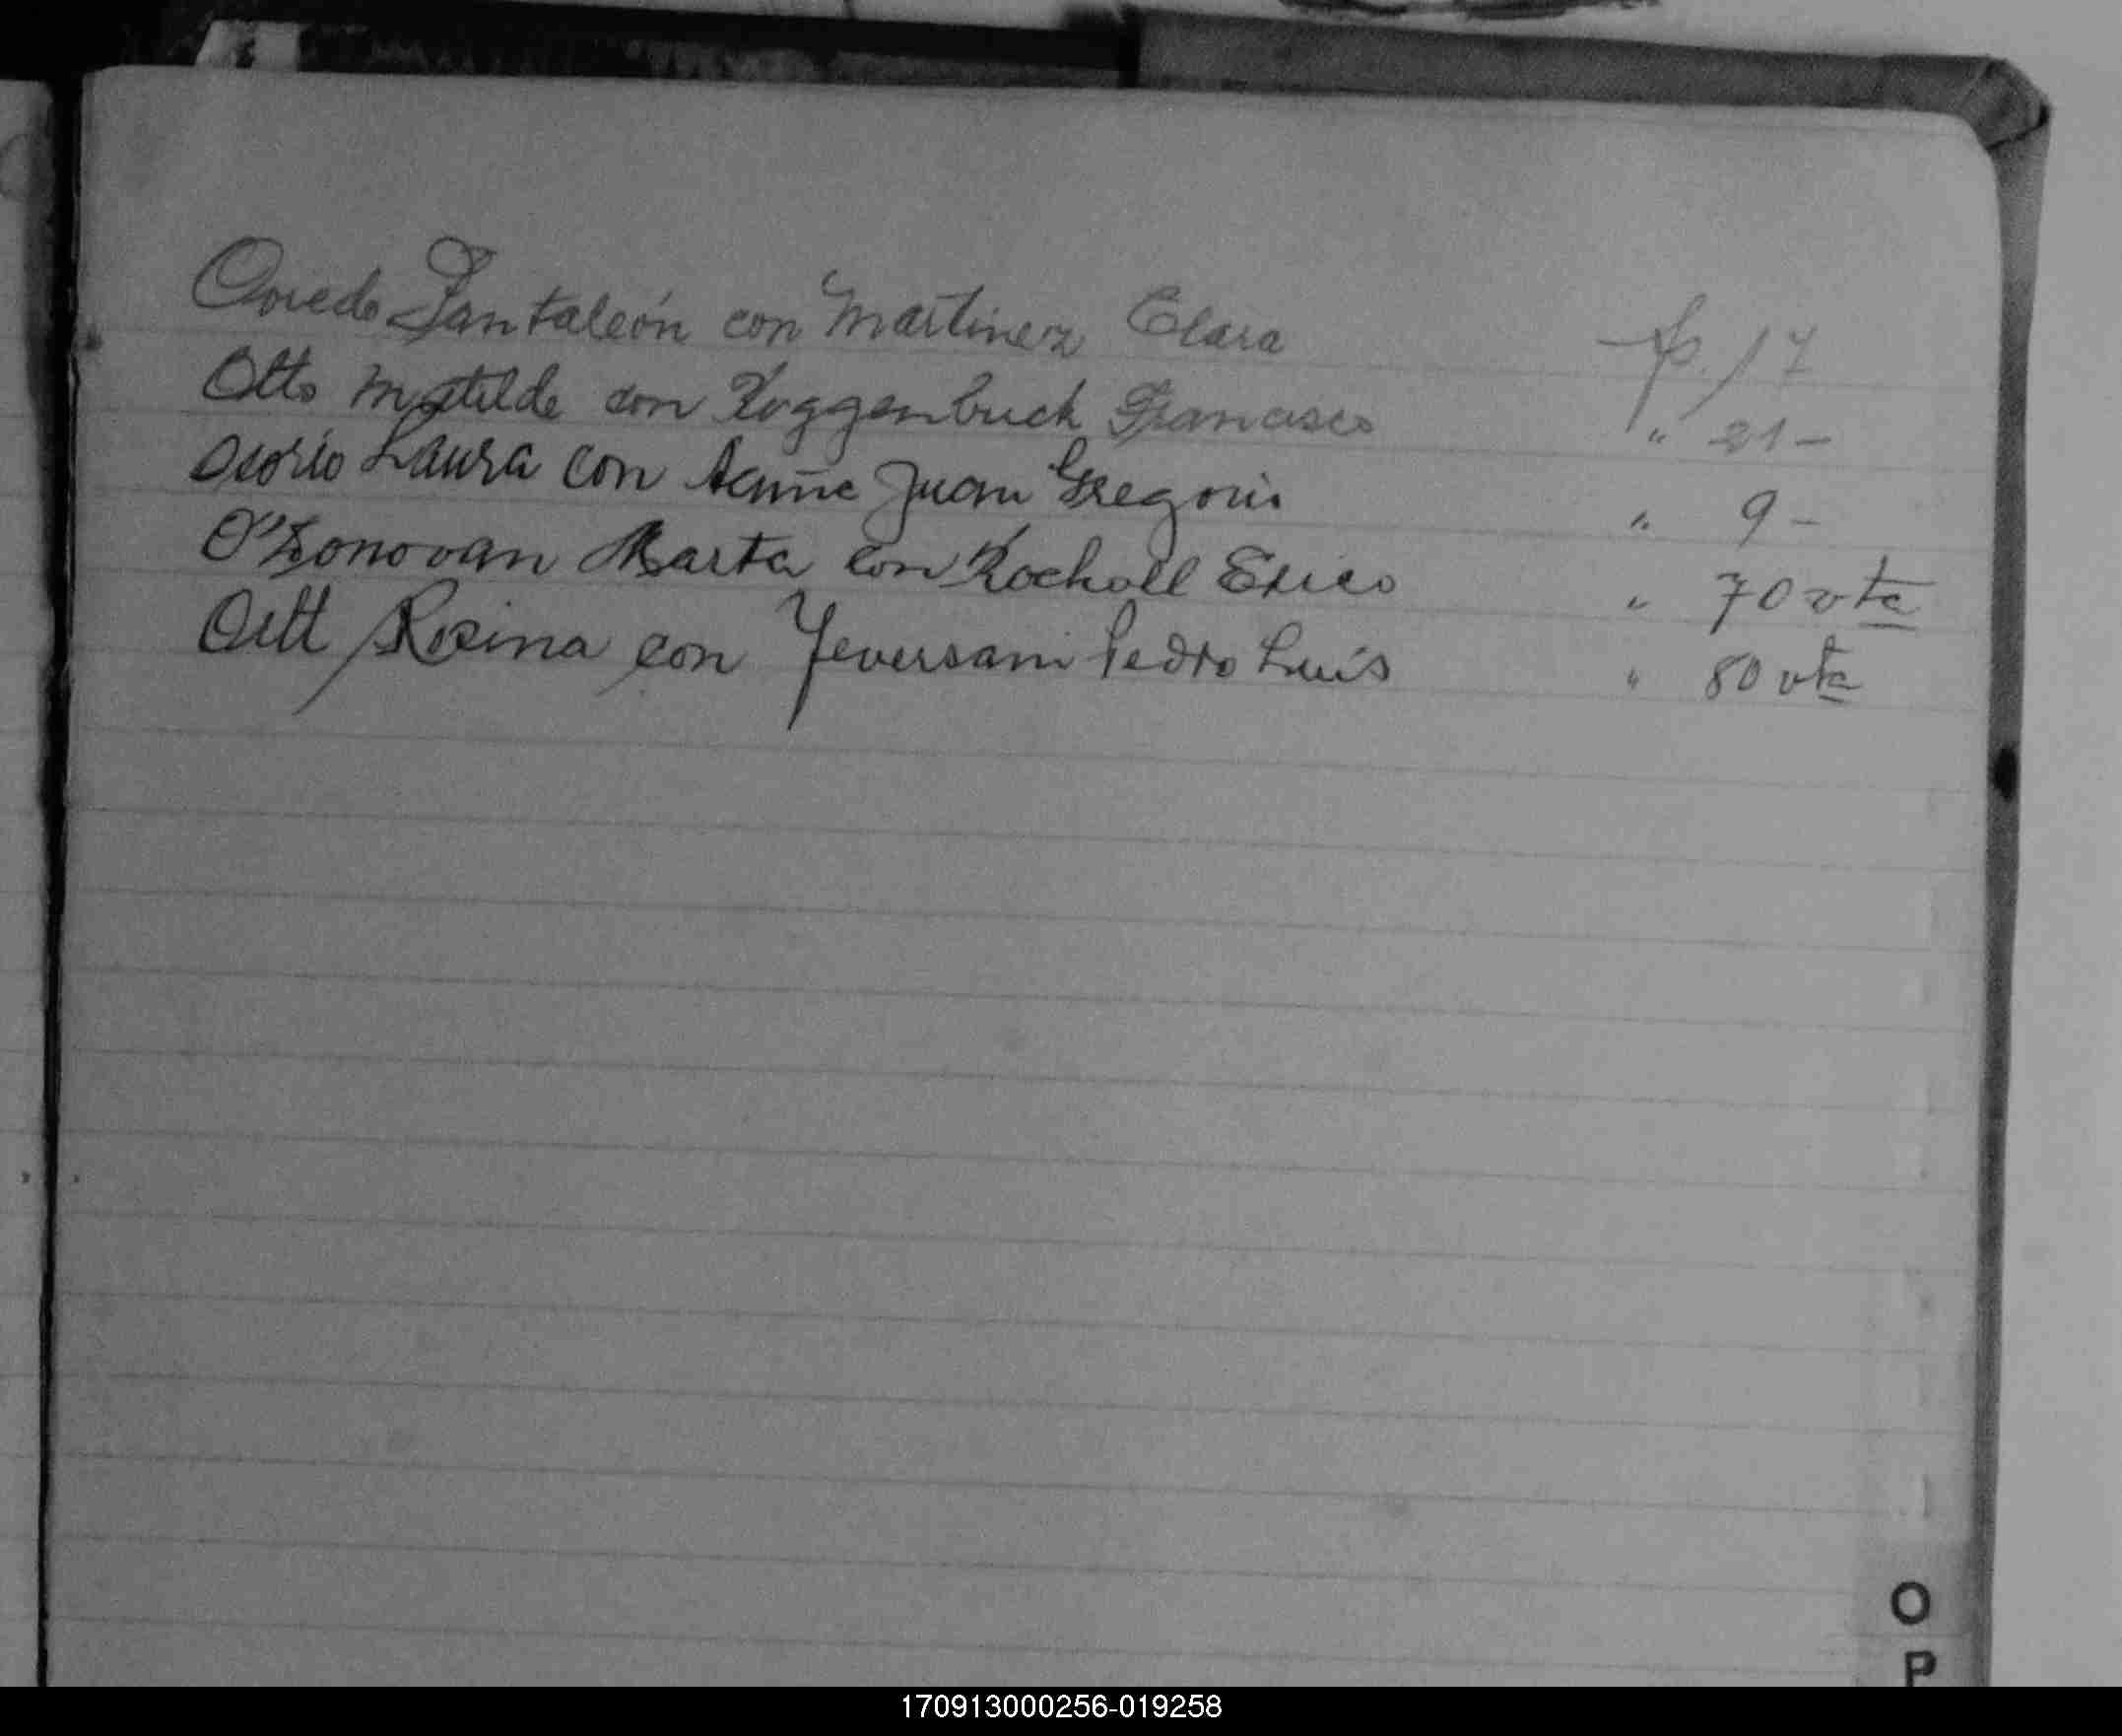 Oviedo Pantaleón con Martinez Clara fs. 17
Otto Matilde con Roggenbuck Francisco " 21-
Osorio Laura con Juan Gregorio " 9-
O'Donovan Marta con Rocholl Erico " 70 vta
Ott Rosina con Jeversani Pedro Luis " 80 vta
O
P
170913000256-019258